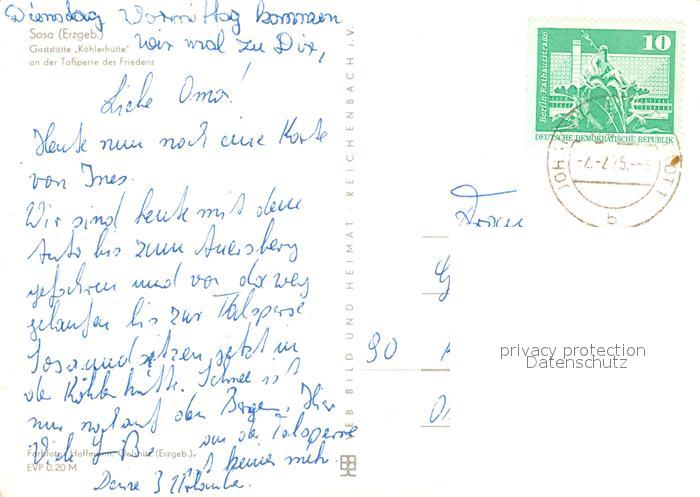 Dienstag Vormittag kommen
wir mal zu Dir,
Sosa (Erzgeb.)
Gaststätte „Köhlerhütte"
an der Talsperre des Friedens
Liebe Oma!
Heute nun noch eine Karte
von Ines.
Wir sind heute mit dem
Auto bis zum Auersberg
gefahren und von da weg
gelaufen bis zur Talsperre
Sosa und sitzen jetzt in
der Köhlerhütte. Schnee ist
nur noch auf den Bergen. Hier
an der Talsperre
ist keiner mehr.
Viele
Deine 3 Urlauber.
Farbfoto: Hoffmann, Oelsnitz (Erzgeb.)
EVP 0,20 M
BILD UND HEIMAT REICHENBACH i.V.
10
Berlin, Rathausstraße
DEUTSCHE DEMOKRATISCHE REPUBLIK
b
Frau
G
90
O
privacy protection
Datenschutz